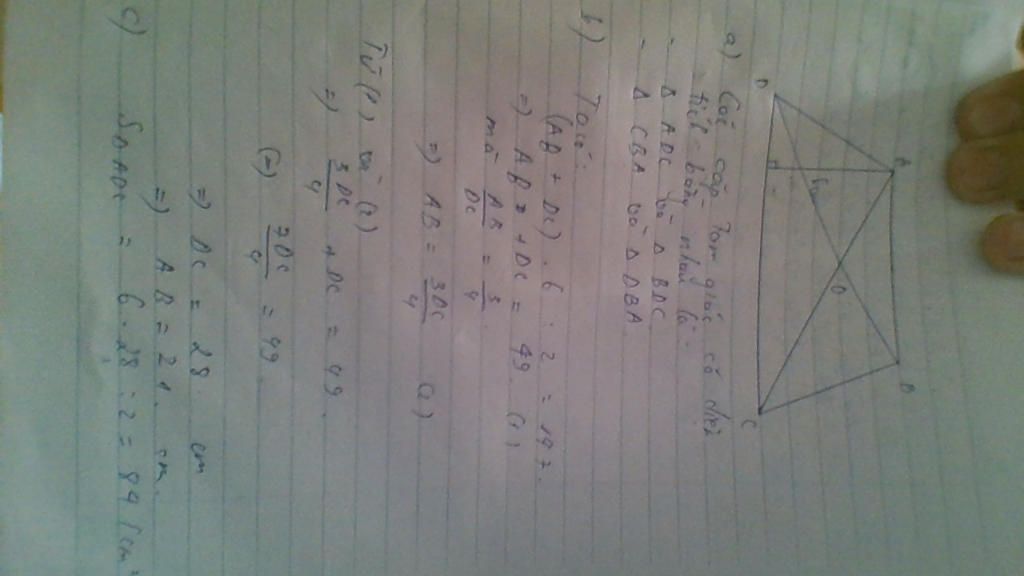 A
B
O
6cm
D
H
C
a) Các cặp tam giác có diện
tích bằng nhau là:
- Δ ADC và Δ BDC
- Δ CBA và Δ DBA
b) Ta có:
(AB + DC) . 6 : 2 = 147
=> AB + DC = 49 (1)
mà AB/DC = 3/4
=> AB = 3DC/4 (2)
Từ (1) và (2)
=> 3DC/4 + DC = 49
(=) 7DC/4 = 49
=> DC = 28 cm
=> AB = 21 cm
c) SDADC = 6 . 28 : 2 = 84 (cm²